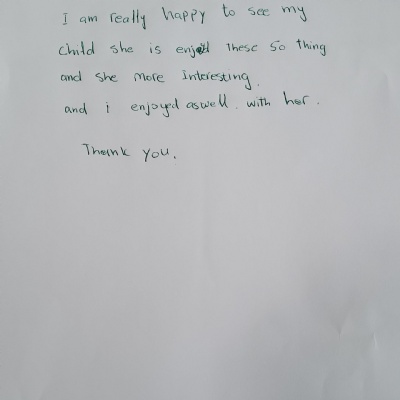 I am really happy to see my
child she is enjoll these so thing
and she more Interesting.
and i enjoyed aswell. with her.
Thank you.